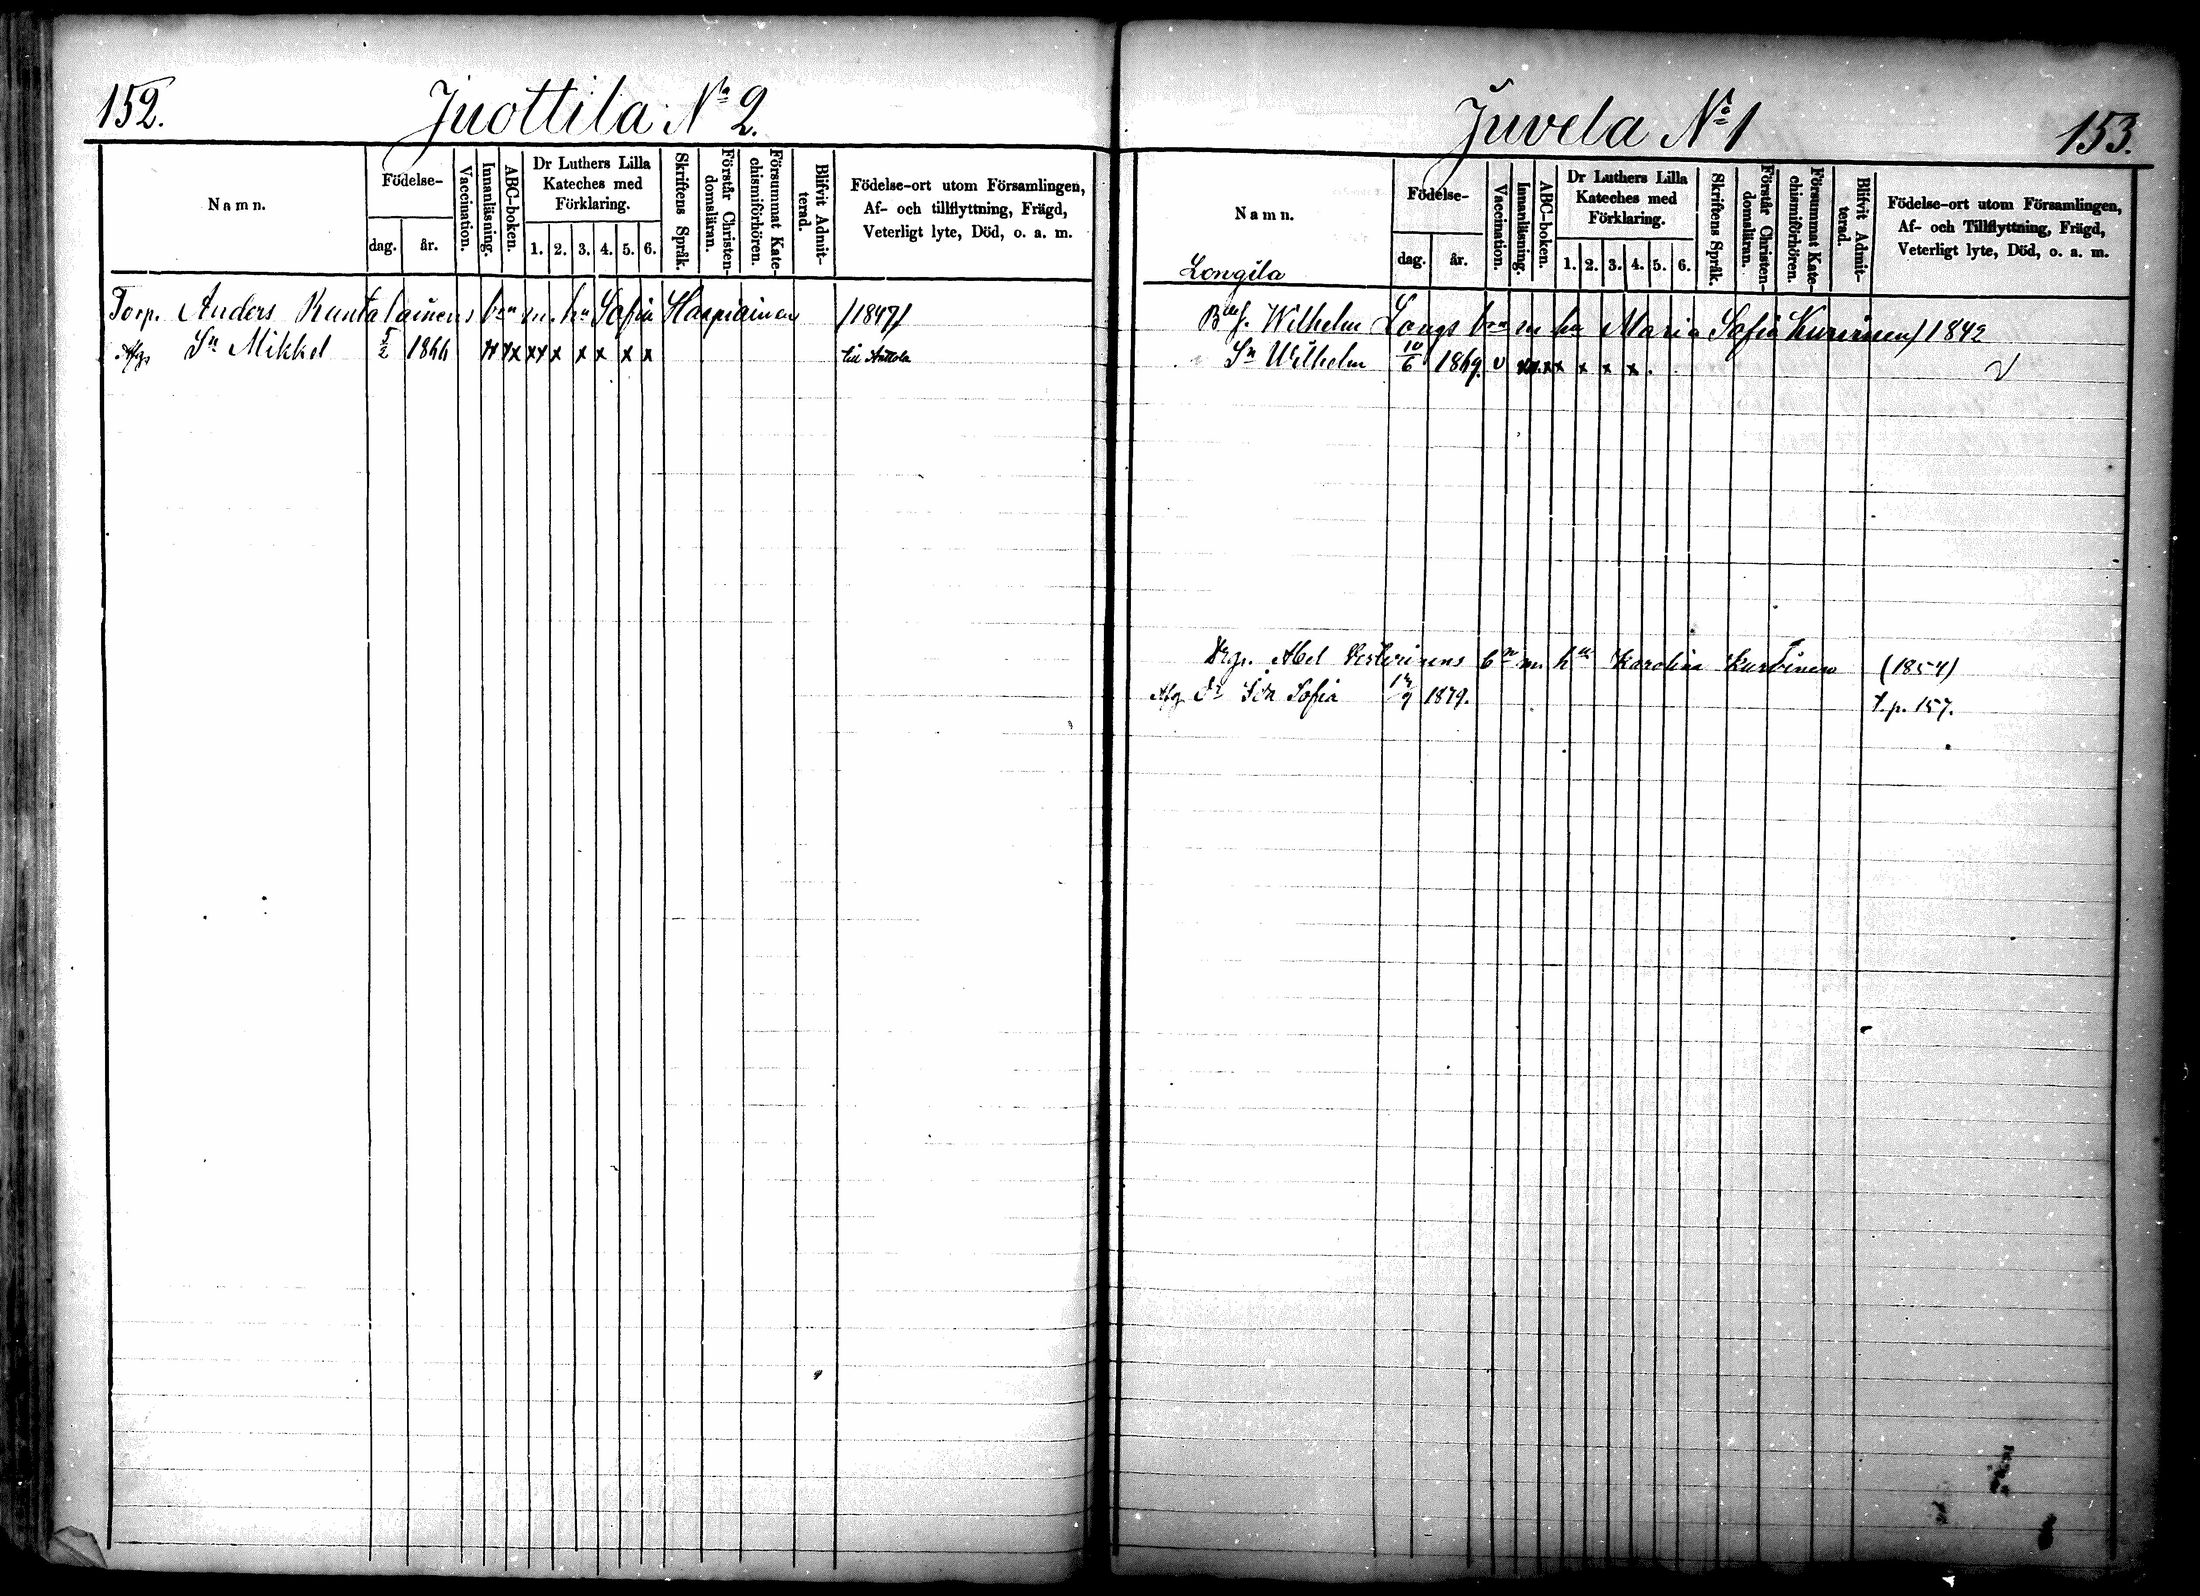 152.
Juottila No 2.
Namn.
Födelse-
dag. år.
Vaccination.
Innanläsning.
ABC-boken.
Dr Luthers Lilla
Kateches med
Förklaring.
1. 2. 3. 4. 5. 6.
Skriftens Språk.
Förstår Christen-
domsläran.
Försummat Kate-
chismiförhören.
Blifvit Admit-
terad.
Födelse-ort utom Församlingen,
Af- och tillflyttning, Frägd,
Veterligt lyte, Död, o. a. m.
Torp. Anders Rautalainens bn m. hu Sofia Haapiainen /1847/
Afg. Sn Mikkel 5/2 1866 xx xx xx x x x x x till
Juvela No 1
153.
Longila
Namn.
Födelse-
dag. år.
Vaccination.
Innanläsning.
ABC-boken.
Dr Luthers Lilla
Kateches med
Förklaring.
1. 2. 3. 4. 5. 6.
Skriftens Språk.
Förstår Christen-
domsläran.
Försummat Kate-
chismiförhören.
Blifvit Admit-
terad.
Födelse-ort utom Församlingen,
Af- och Tillflyttning, Frägd,
Veterligt lyte, Död, o. a. m.
Wilhelm Longs bn m hu Maria Sofia Kurvinen /1842
Sn Wilhelm 10/6 1869. v xx. xx x x x.
Abel Vesterinens bn m. hu Karolina Kurvinen (1854)
Afg Dr Ida Sofia 1879. t. p. 157.